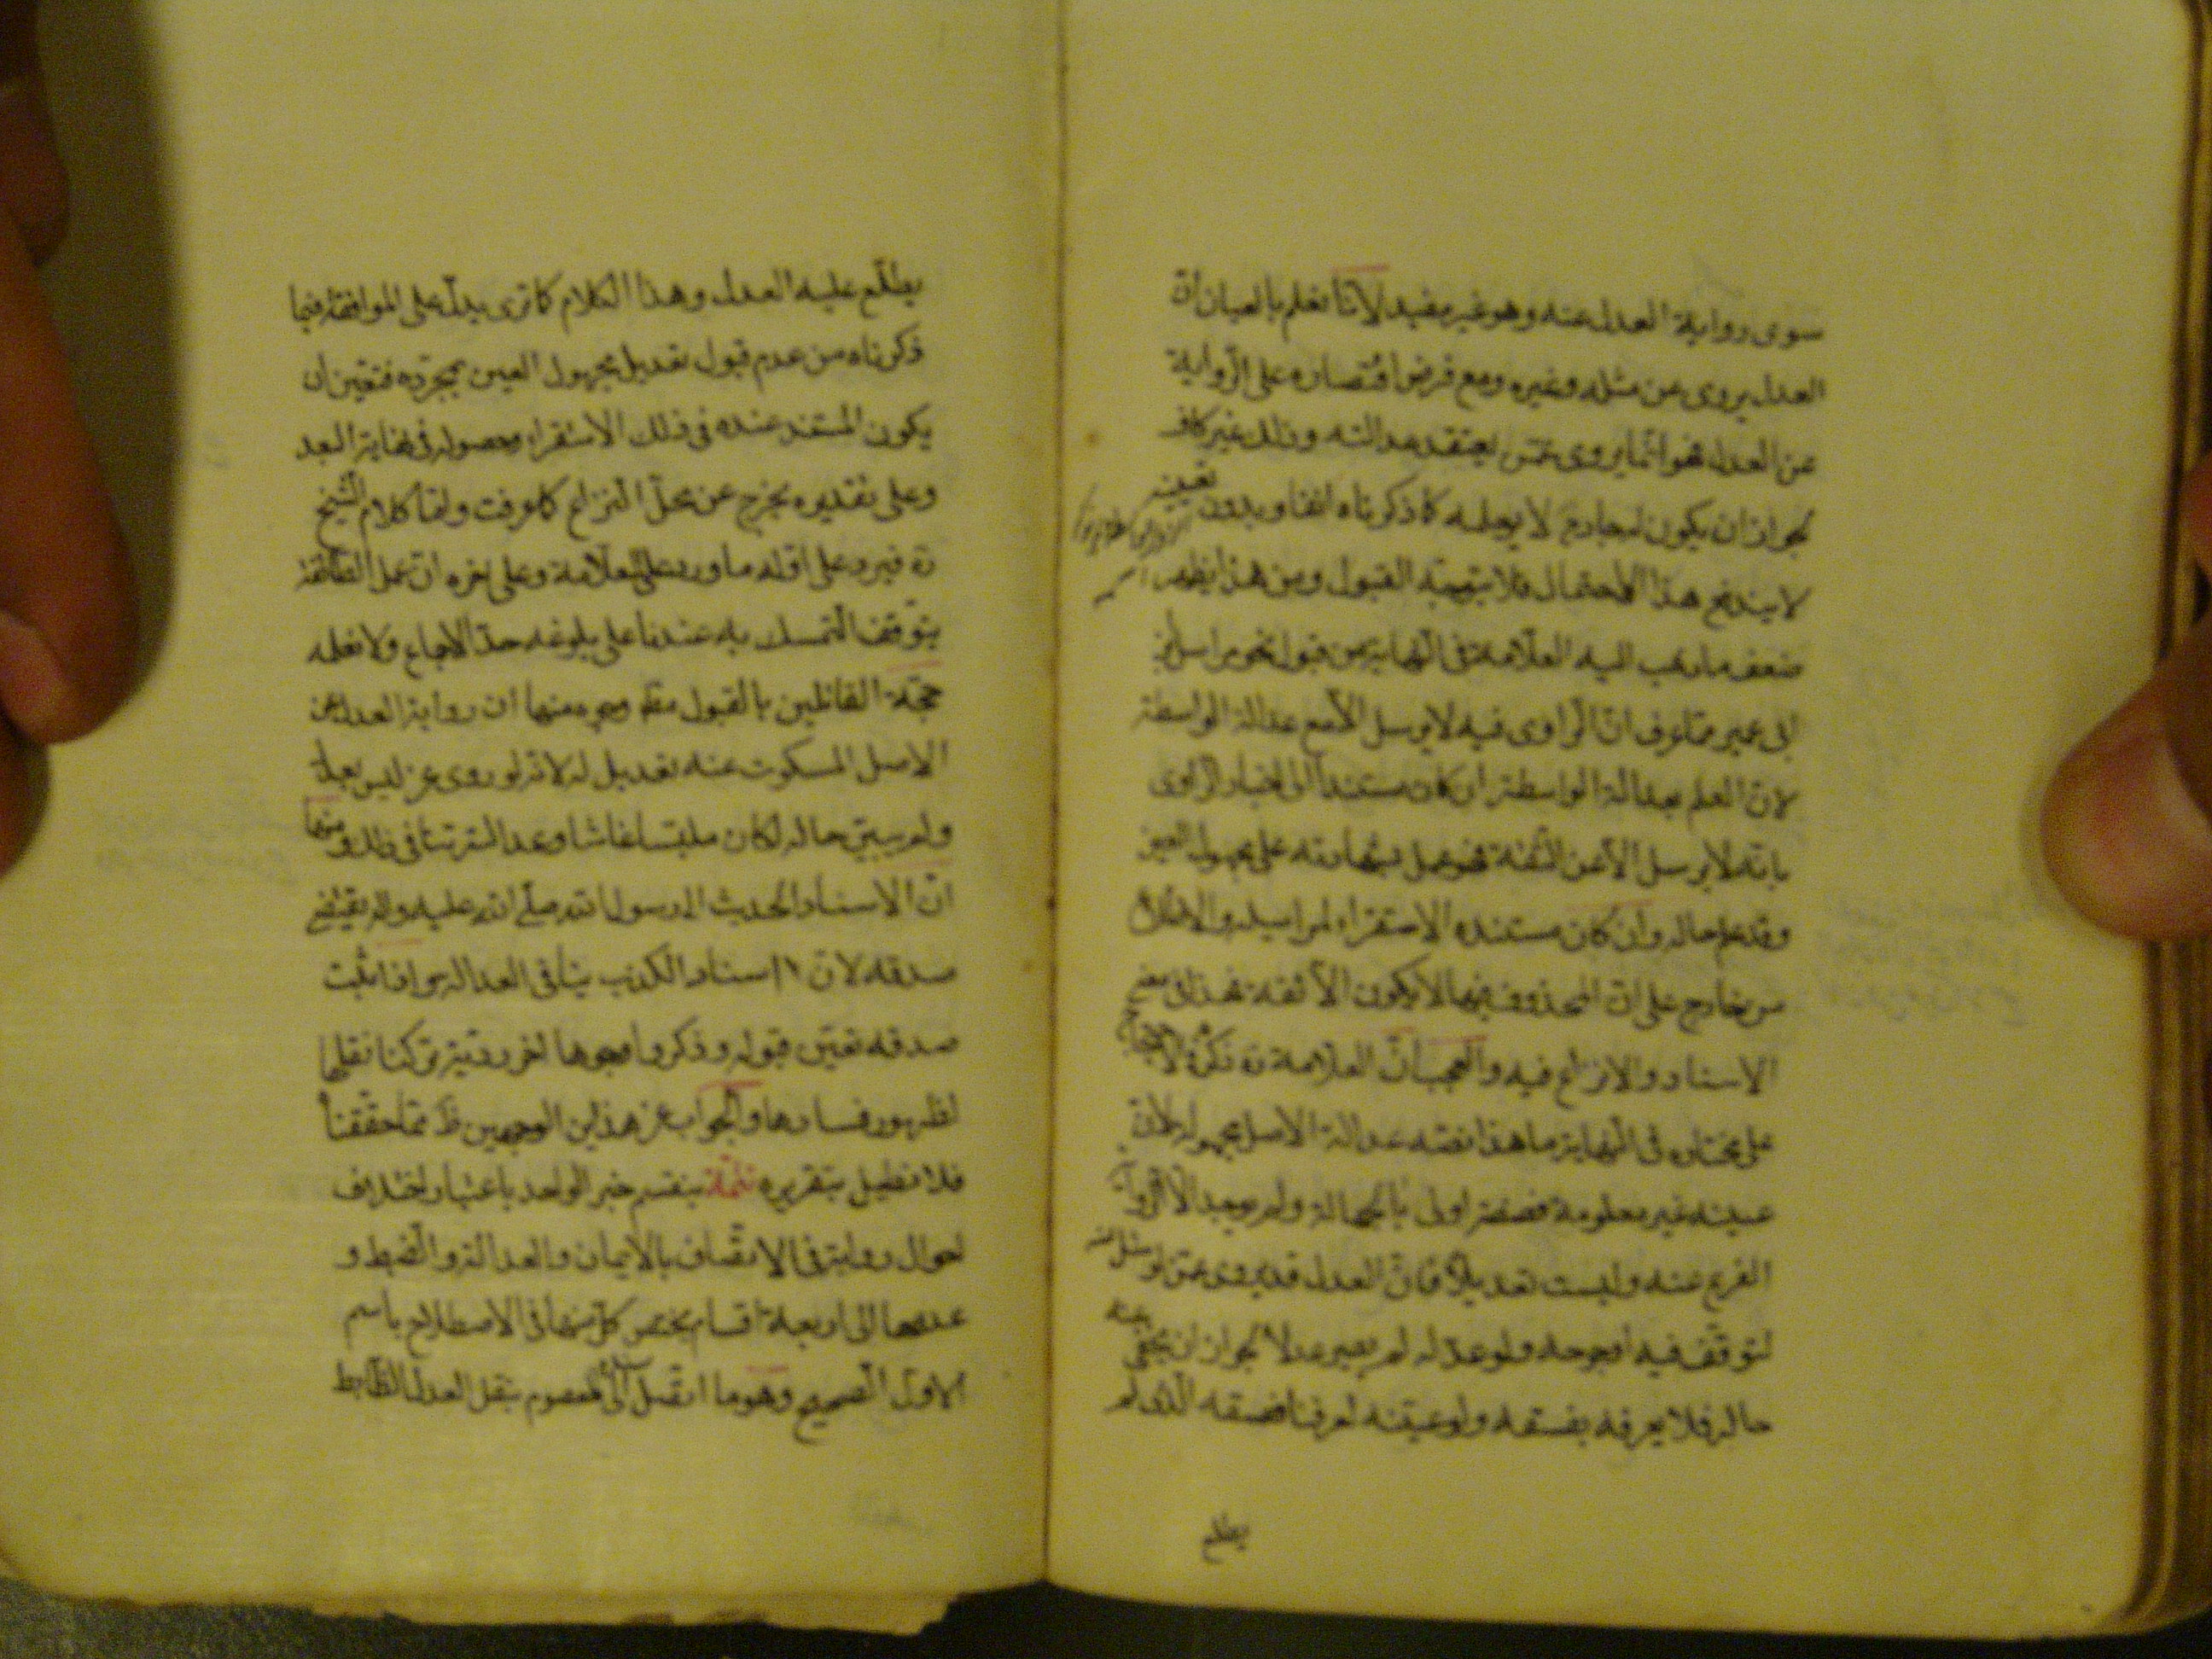 سوى رواية العدل عنه وهو غير مفيد لانا نعلم بالعيان ان
العدل يروى عن مثله وغيره ومع فرض اقتصاره على الرواية
عن العدل فهو انما يروى عمن يعتقد عدالته وذلك غير كاف
لجواز ان يكون له جارح لا يعلمه كما ذكرناه انفا وبدون تعيينه
لا يندفع هذا الاحتمال فلا يتوجه القبول ومن هذا يظهر
ضعف ما ذهب اليه العلامة فى النهاية من قبول نحو مراسيل ابن
ابى عمير مما عرف ان الراوى فيه لا يرسل الا مع عدالة الواسطة
لان العلم بعدالة الواسطة ان كان مستندا الى اخبار الراوى
بانه لا يرسل الا عن الثقة فهو عمل بشهادته على مجهول العين
وقد علم حاله وان كان مستنده الاستقراء لمراسيله والاطلاع
من خارج على ان المحذوف فيها لا يكون الا ثقة فهذا فى معنى
الاسناد ولا نزاع فيه والعجب ان العلامة ره ذكر فى الاحتجاج
على مختاره فى النهاية ما هذا نصه عدالة الاصل مجهولة لان
عينه غير معلومة فصفته اولى بالجهالة ولم يوجد الا رواية
الفرع عنه وليست تعديلا فان العدل قد يروى عمن لو سئل عنه
لتوقف فيه او جرحه ولو عدله لم يصير عدلا لجواز ان يخفى عنه
حاله فلا يعرفه بفسقه ولو عينه لعرفنا فسقه الذى لم
يطلع
يطلع عليه العدل وهذا الكلام كما ترى يدل على الموافقة فيما
ذكرناه من عدم قبول تعديل مجهول العين بمجرده فتعين ان
يكون المستند عنده فى ذلك الاستقراء وحصوله فى غاية البعد
وعلى تقديره يخرج عن محل النزاع كما عرفت واما كلام الشيخ
ره فيرد على اوله ما ورد على العلامة وعلى اخره ان عمل الطائفة
يتوقف التمسك به عندنا على بلوغه حد الاجماع ولا نعلمه
حجة القائلين بالقبول مطلقا وجوه منها ان رواية العدل عن
الاصل المسكوت عنه تعديل له لانه لو روى عن ليس بعدل
ولم يبين حاله لكان ملبسا غاشا وعدالته تنافى ذلك ومنها
ان الاسناد الحديث الى رسول الله صلى الله عليه واله يقتضى
صدقه لان اسناد الكذب ينافى العدالة واذا ثبت
صدقه تعين قبوله وذكروا وجوها اخر ردية تركنا نقلها
لظهور فسادها والجواب عن هذين الوجهين ظ مما حققنا
فلا نطيل بتقريره تتمة ينقسم خبر الواحد باعتبار اختلاف
احوال رواية فى الاتصاف بالايمان والعدالة والضبط و
عدمها الى اربعة اقسام يختص كل منها فى الاصطلاح باسم
الاول الصحيح وهو ما اتصل الى المعصوم بنقل العدل الضابط